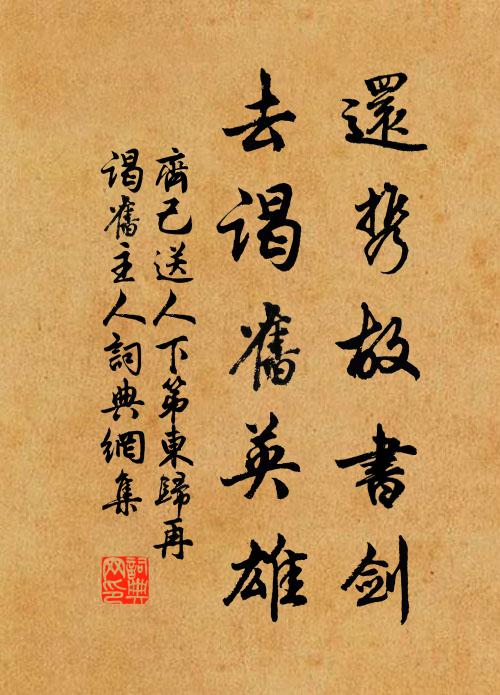 還携故書劍
去謁舊英雄
齊己送人下第東歸再
謁舊主人詞典網集
詞典网印